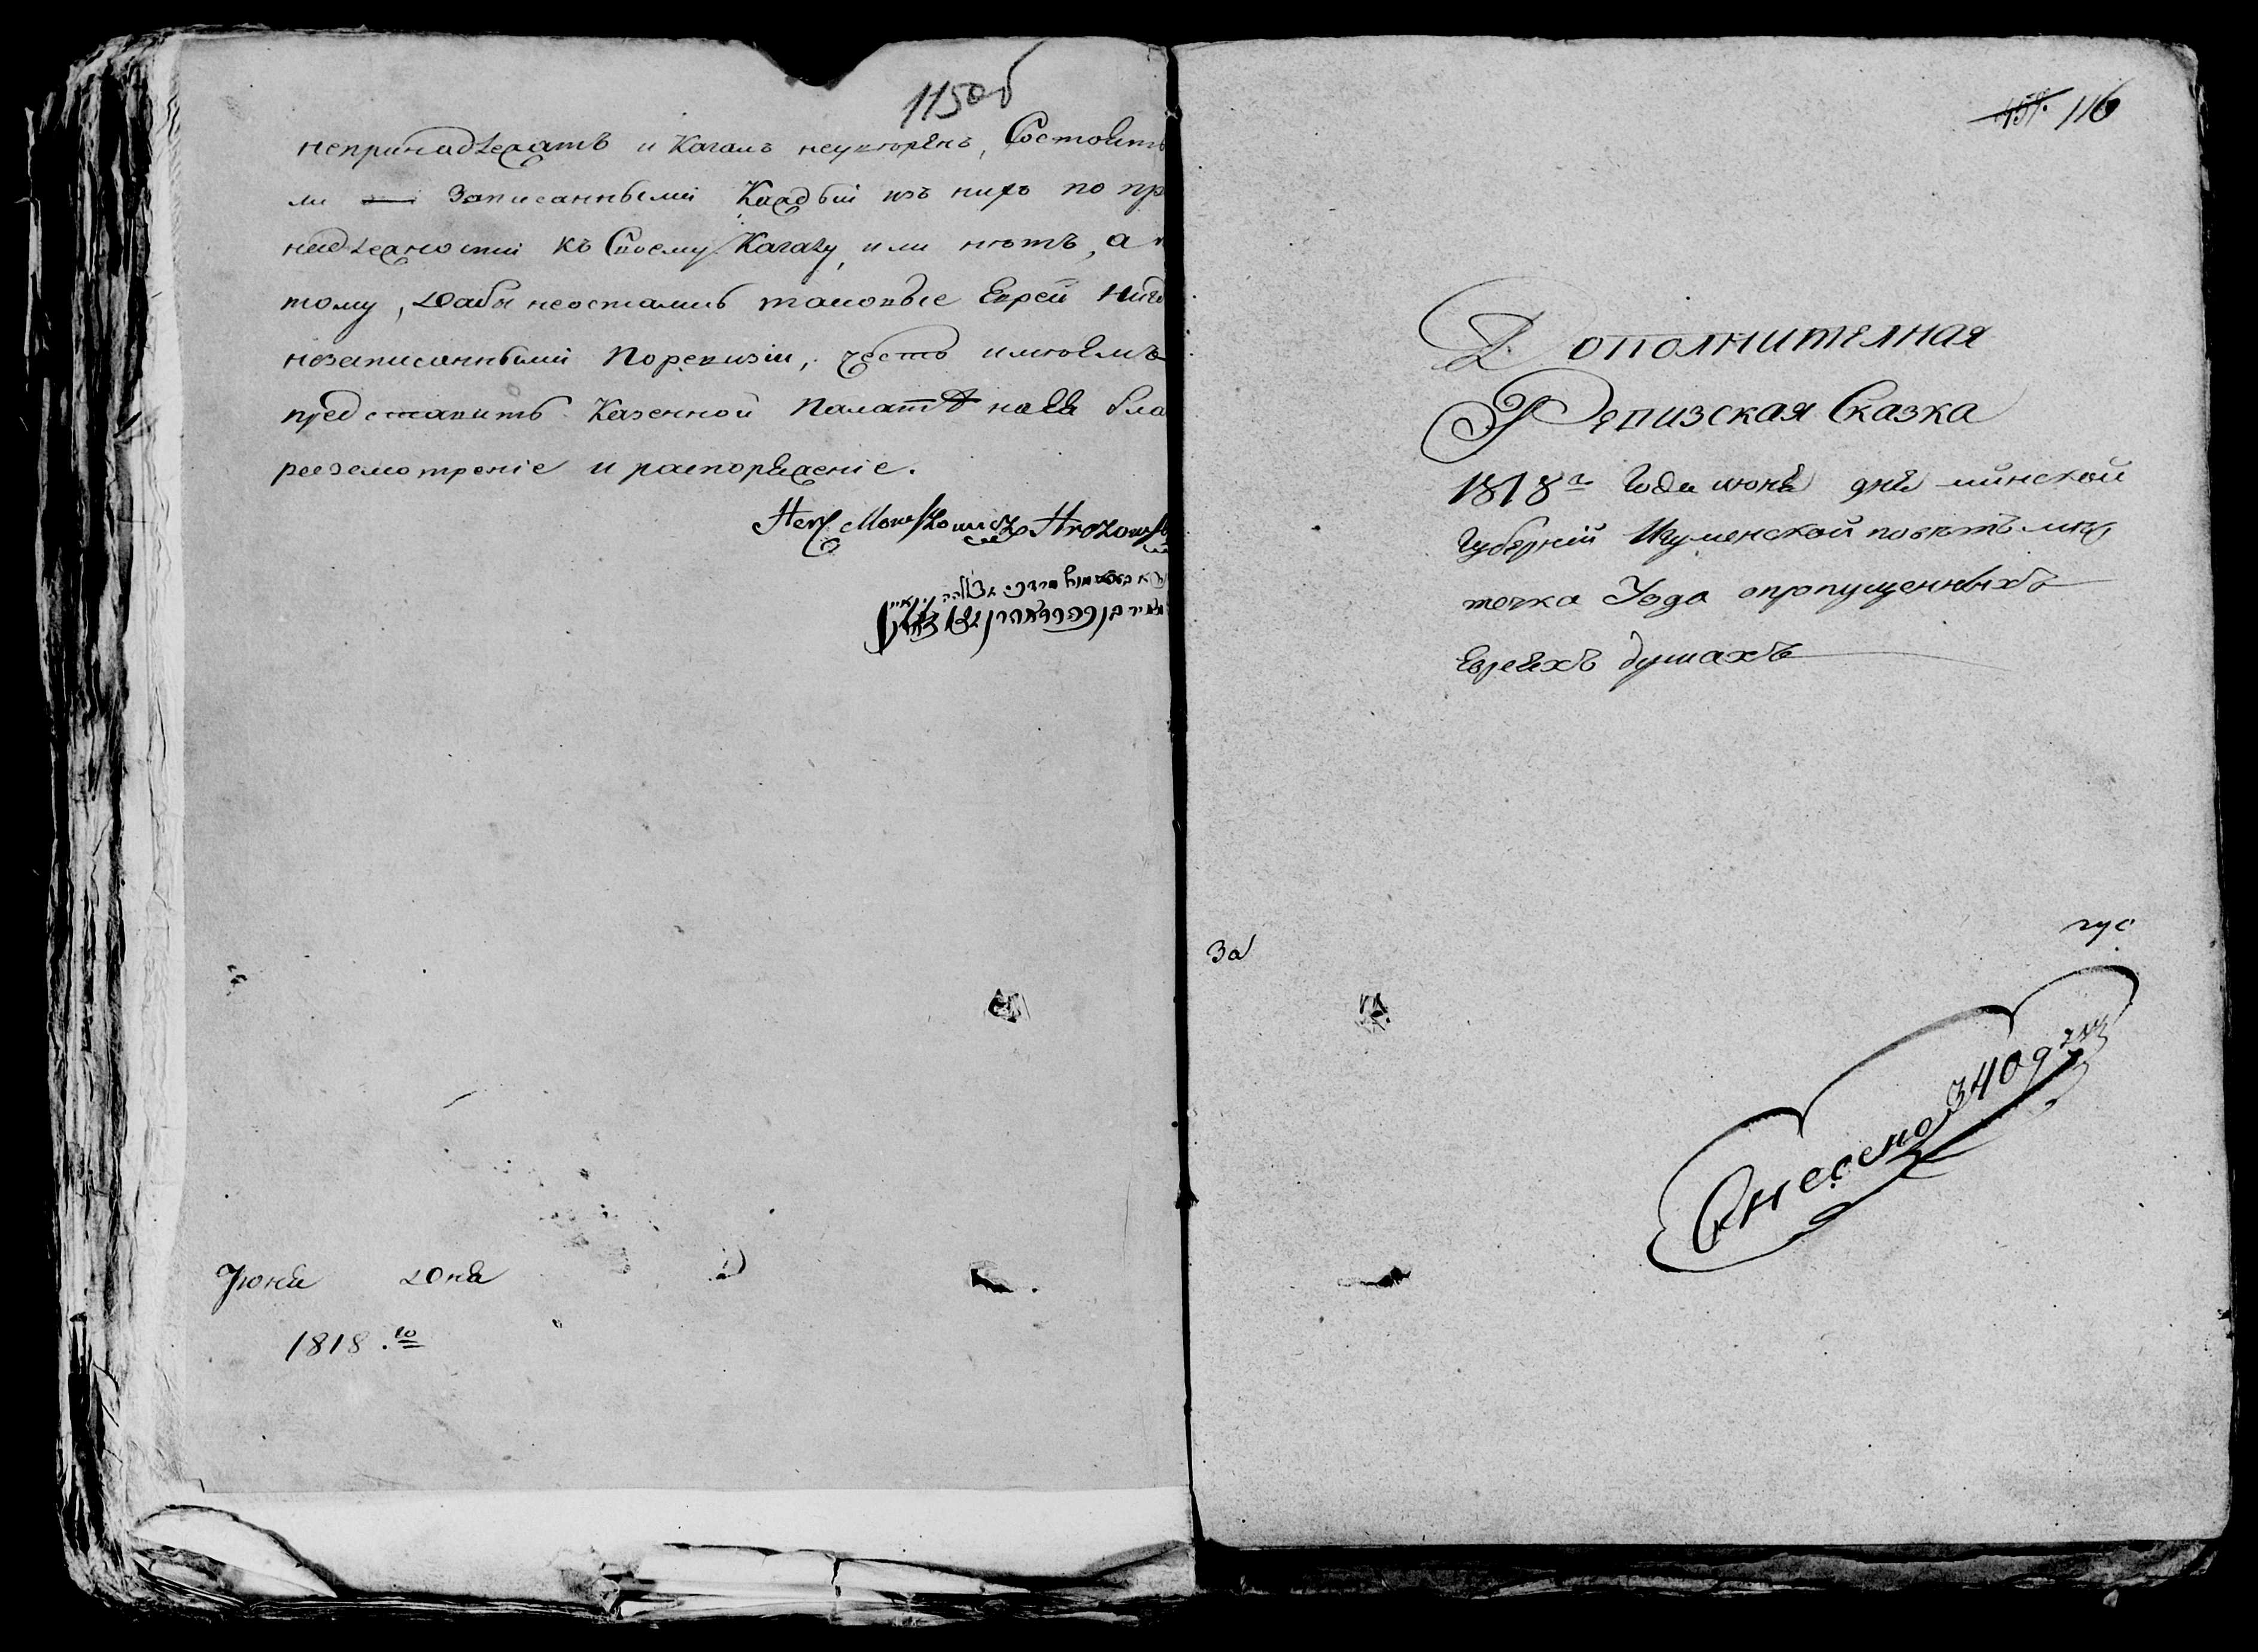 115об
непринадлежатъ и Кагалъ неуверенъ, Состоитъ
ли записанными Каждый изъ нихъ по пр
надлежности къ Своему Кагалу, или нетъ, а п
тому, дабы неостались таковые Еврей Нигд
незаписанными Поревизіи, честь имеемъ
представить Казенной Палатѣ на ея бла
разсмотреніе и распоряженіе.
Herz Mowszowicz Hrozows
Июня дня
1818.го
116
Дополнителная
Ревизская Сказка
1818га Года июня дня минской
Губерніи Игуменской поветъ мес
течка Узда опропущенныхъ
Евреяхъ душахъ
за
гус
Снесено 340